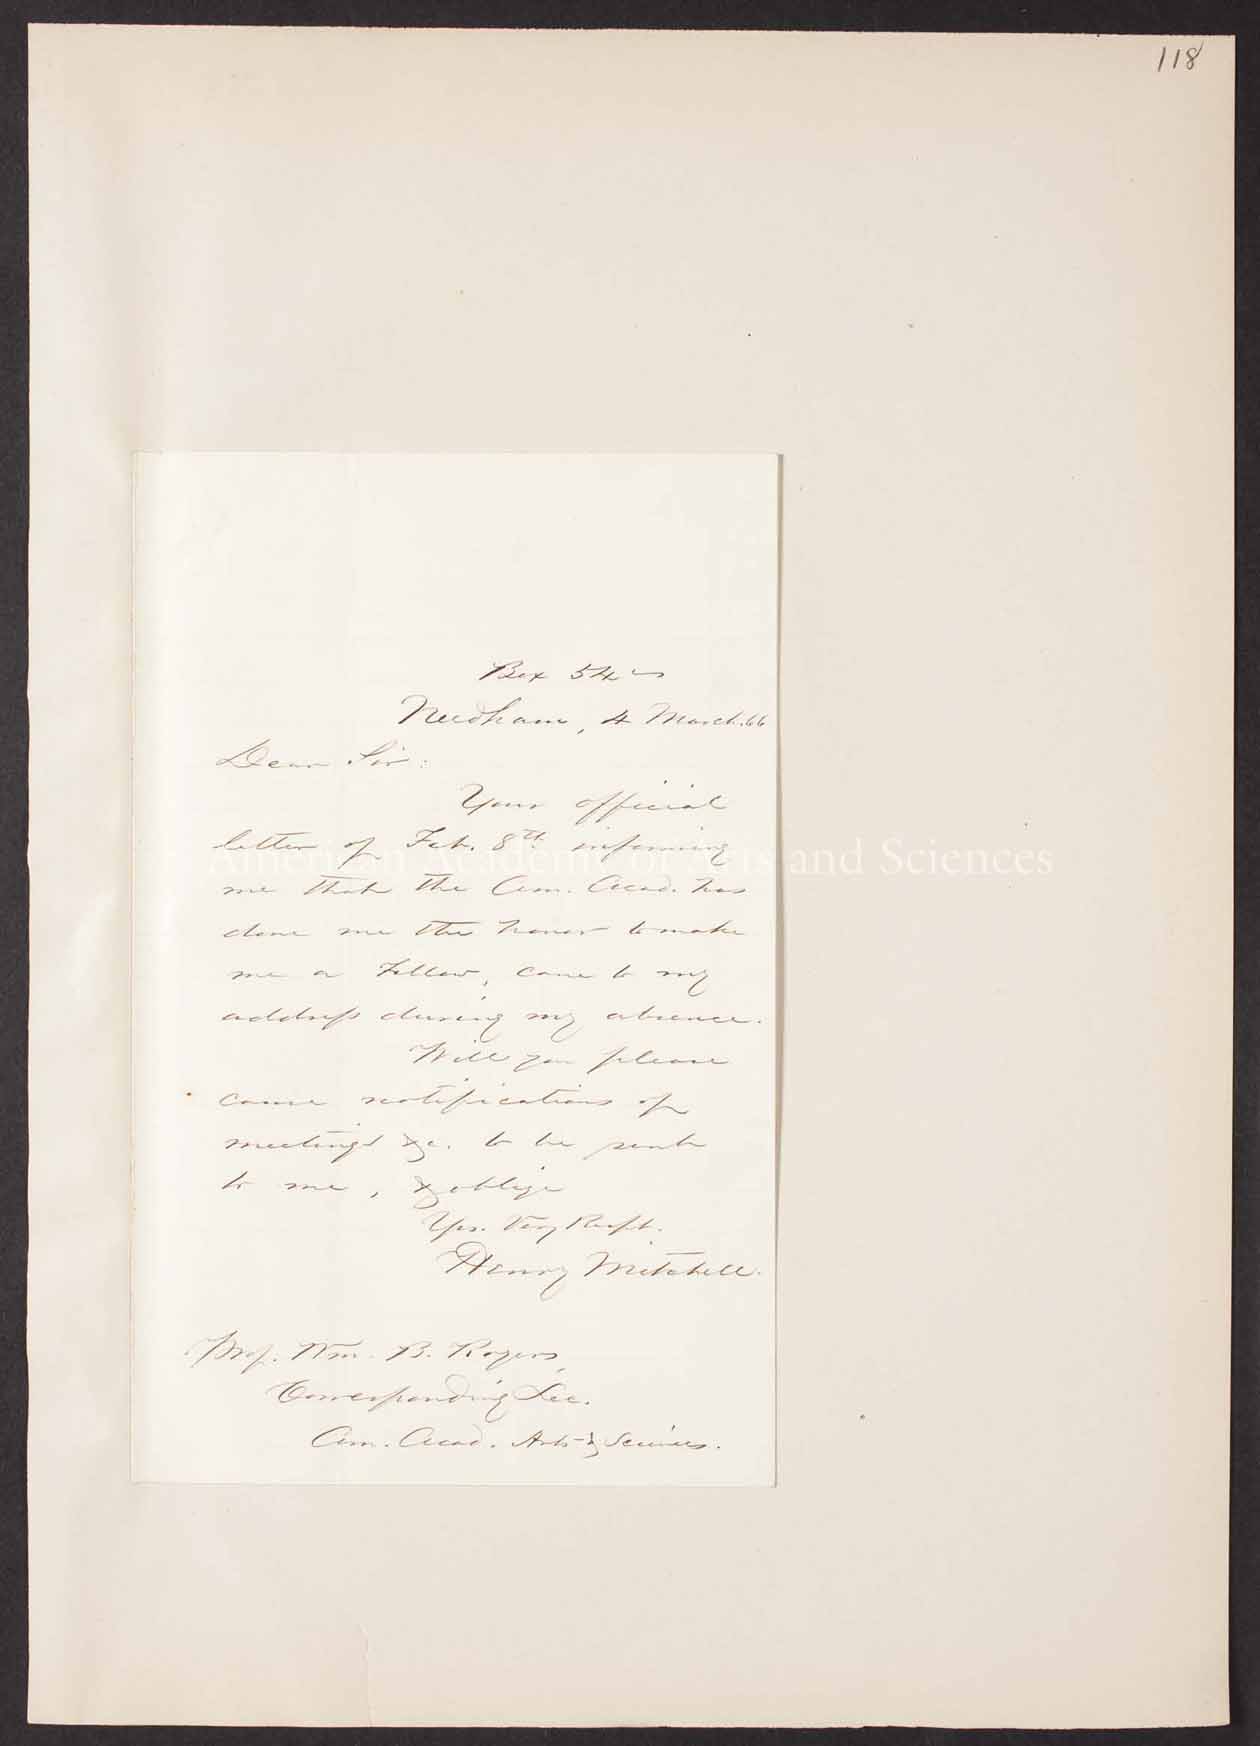 118
Box 54
Needham, 4 March. 66
Dear Sir:
Your official
letter of Feb. 8th. informing
me that the Am. Acad. has
done me the honor to make
me a Fellow, came to my
address during my absence.
Will you please
cause notifications of
meetings &c. to be sent
to me, & oblige
Yrs. Very Respt.
Henry Mitchell.
Prof. Wm. B. Rogers,
Corresponding Sec.
Am. Acad. Arts & Sciences.
American Academy of Arts and Sciences